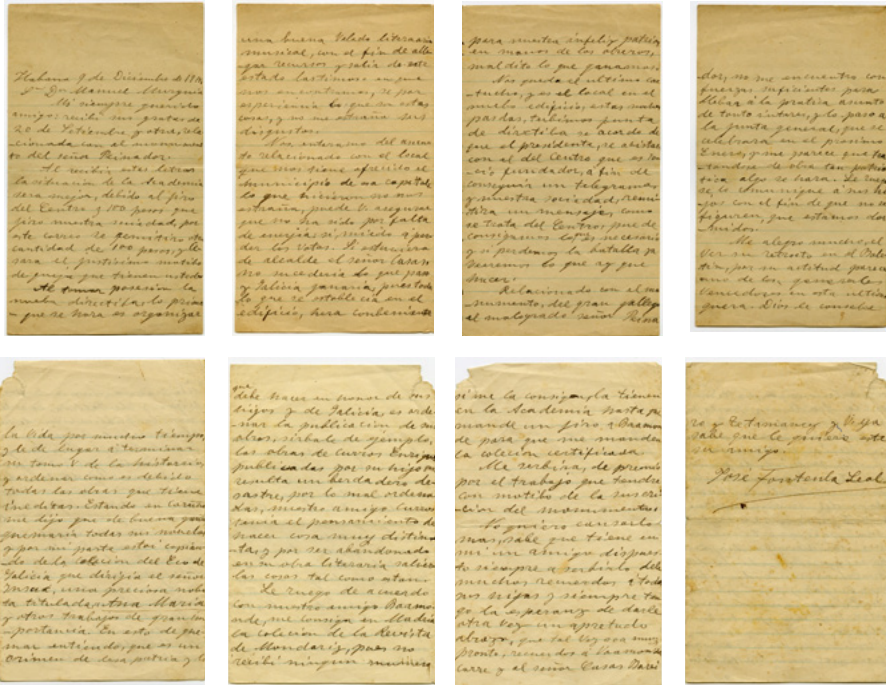 Habana 9 de Diciembre de
Sr Dn Manuel Murguia
Mi siempre querido
amigo: recibi sus gratas de
20 de Setiembre y otra, rela
-cionada con el monumen
to del señor
Al recibir estas letras
la situacion de la Academia
sera mejor, debido al jiro
del Centro y 150 pesos que
jiro nuestra sociedad, por
este correo se remitira otra
cantidad de 100 pesos, y
sara el justisimo motibo
de queja que tienen ustedes
Al tomar posesion la
nueba directiba, lo prime
-ro que se hara es organizar
una buena Velada literaria
musical, con el fin de alle
gar recursos y salir de este
estado lastimoso en que
nos encontramos, se por
esperiencia lo que son estas
cosas, y no me estraña sus
disgustos.
Nos enteramos del asun
to relacionado con el local
que nos tiene ofrecido el
municipio de esa capital
lo que hicieron no nos
estraña, puede V asegurar
que no ha sido por falta
de energia, si miedo a per
der los votos. Si estuviera
de alcalde el señor Casas
no sucederia lo que paso
y Galicia ganaria, pues todo
lo que se establecia en el
edificio, hera combeniente
para nuestra infeliz patria
en manos de los obreros,
maldito lo que ganamos.
Nos queda el ultimo car
-tucho, y es el local en el
nuebo edificio, estas noches
pasadas, tubimos junta
de directiba se acordo de
que el presidente, se abistase
con el del Centro que es so
-cio fundador, a fin de
conseguir un telegrama,
y nuestra sociedad, remi
tira un mensaje, como
se trata del Centro, puede
consigamos lo necesario
y si perdemos la batalla ya
veremos lo que ay que
hacer.
Relacionado con el mo
-numento, del gran gallego
el malogrado señor
dor, no me encuentro con
fuerzas suficientes para
llebar a la pratica asunto
de tanto interes, y lo paso a
la junta general, que se
celebrara en el prosimo
Enero, y me parece que tra
tandose de obra tan patrio
tica algo se hara. Le ruego
se lo comunique a sus hi
jos con el fin de que no se
figuren, que estamos dor
-midos.
Me alegro mucho, el
ver su retrato en el Bole
tin, por su actitud parece
uno de los generales
bencedores en esta ultima
guera. Dios le conserbe
la bida por mucho tiempo,
y le de lugar a terminar
su tomo 6 de la historia,
y ordenar como es debido
todas las obras que tiene
ineditas. Estando en Coruña
me dijo que de buena gana
quemaria todas sus nobelas
y por mi parte estoi copian
-do de la colecion del Eco de
Galicia que dirijia el señor
Insua, una preciosa nobe
la titulada Ana Maria
y otros trabajos de gran im
-portancia. En esto de que
mar entiendo, que es un
crimen de lesa patria y lo
que
debe hacer en honor de sus
hijos y de Galicia, es orde
-nar la publicacion de sus
obras, sirbale de ejemplo,
las obras de Curros Enriquez
publicadas por su hijo
resulta un berdadero de
sastre, por lo mal ordena
das, nuestro amigo Curros
tenia el pensamiento de
hacer cosa muy distin
-ta, y por ser abandonado
en su obra literaria salieron
las cosas tal como estan.
Le ruego de acuerdo
con nuestro amigo Baamo
nde, me consiga en Madrid
la colecion de la Revista
de Mondariz, pues no
recibi ningun numero
si me la consigen, la tienen
en la Academia hasta que
mande un jiro a Baamon
de para que me manden
la colecion certificada
Me serbira, de premio
por el trabajo que tendre
con motibo de la suscri
-cion del monumento.
No quiero cansarlo
mas, sabe que tiene en
mi un amigo dispues
to siempre a serbirlo dele
muchos recuerdos a todas
sus hijas y siempre ten
go la esperanza de darle
otra vez un apretado
abrazo, que tal vez sea muy
pronto, recuerdos a Baamonde
Carre y al señor Casas
ro y Estrabancey y V ya
sabe que le quiere este
su amigo.
José Fontenla Leal